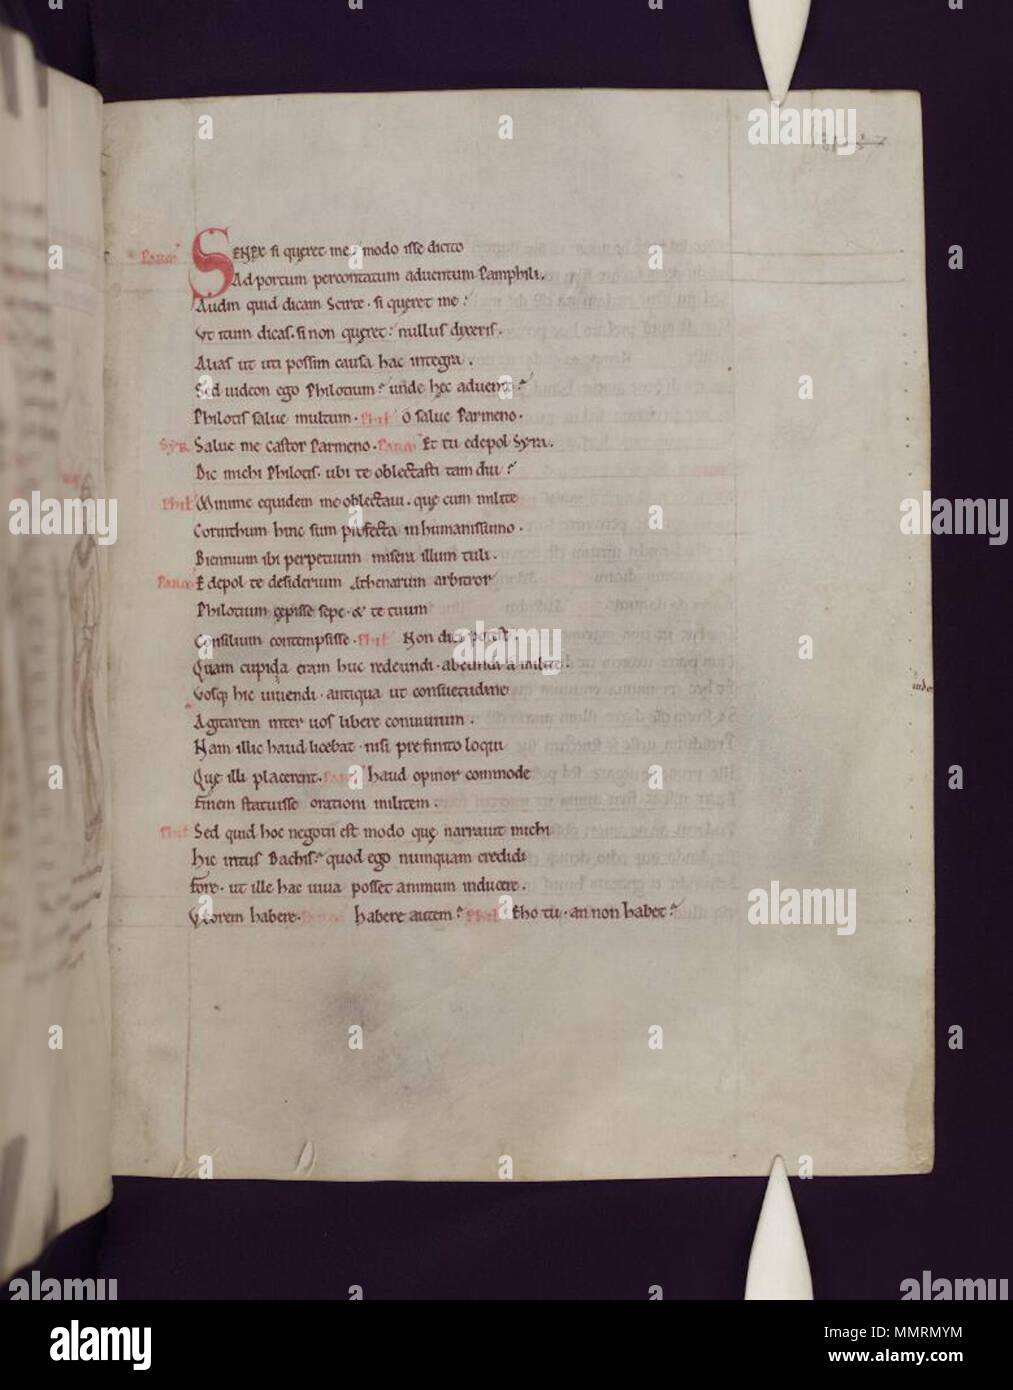 Parm̄ SENEX si queret me. modo isse dicito
Ad portum percontatum aduentum Pamphili.
Audin quid dicam Scirte. si queret me?
Vt tum dicas. si non queret? nullus dixeris.
Alias ut uti possim causa hac integra.
Sed uideon ego Philotium? unde hec aduenit?
Philotis salue multum. Phil ó salue Parmeno.
Syr. Salue me castor Parmeno. Parm̄ Et tu edepol Syra.
Dic michi Philotis. ubi te oblectasti tam diu?
Phil Minime equidem me oblectaui. que cum milite
Corinthum hinc sum profecta inhumanissimo.
Biennium ibi perpetuum misera illum tuli.
Parm̄ Edepol te desiderium Athenarum arbitror
Philotium cepisse sepe. & te tuum
Consilium contempsisse. Phil Non dici potest.
Quam cupida eram huc redeundi. abeundi a milite.
Vosq; hic uiuendi. antiqua ut consuetudine
Agitarem inter uos libere conuiuium.
Nam illic haud licebat. nisi prefinito loqui
Que illi placerent. Parm̄ haud opinor commode
finem statuisse orationi militem.
Phil Sed quid hoc negotii est modo que narrauit michi
hic intus Bachis? quod ego numquam credidi
fore. ut ille hac uiua posset animum inducere.
Vxorem habere. Parm̄ habere autem? Phil Eho tu. an non habet?
alamy
Image ID: MMRMYM
www.alamy.com